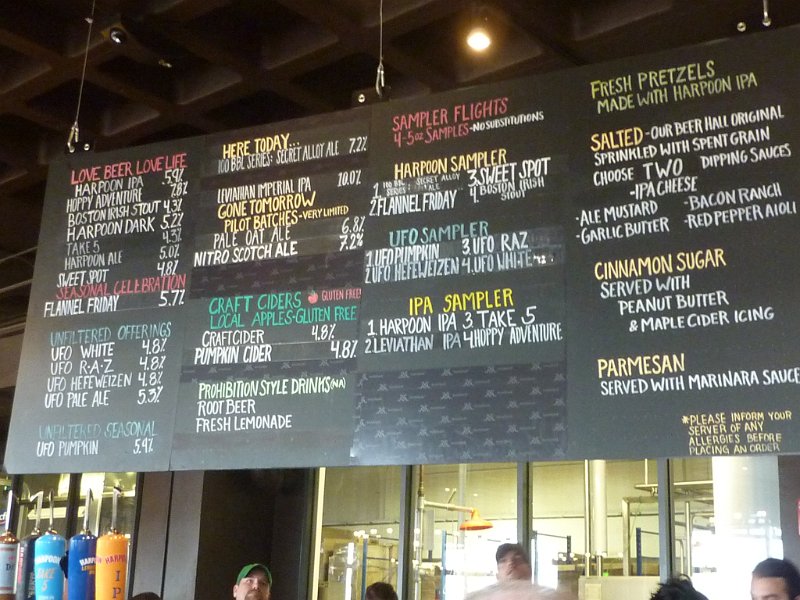 LOVE BEER LOVE LIFE
HARPOON IPA 5.9%
HOPPY ADVENTURE 7.8%
BOSTON IRISH STOUT 4.3%
HARPOON DARK 5.2%
TAKE 5 4.3%
HARPOON ALE 5.0%
SWEET SPOT 4.8%
SEASONAL CELEBRATION
FLANNEL FRIDAY 5.7%
UNFILTERED OFFERINGS
UFO WHITE 4.8%
UFO R·A·Z 4.8%
UFO HEFEWEIZEN 4.8%
UFO PALE ALE 5.3%
UNFILTERED SEASONAL
UFO PUMPKIN 5.9%
HERE TODAY...
100 BBL SERIES: SECRET ALLOY ALE 7.2%
LEVIATHAN IMPERIAL IPA 10.0%
GONE TOMORROW
PILOT BATCHES-VERY LIMITED
PALE OAT ALE 6.8%
NITRO SCOTCH ALE 7.2%
CRAFT CIDERS GLUTEN FREE!
LOCAL APPLES-GLUTEN FREE
CRAFTCIDER 4.8%
PUMPKIN CIDER 4.8%
PROHIBITION STYLE DRINKS(N/A)
ROOT BEER
FRESH LEMONADE
SAMPLER FLIGHTS
4-5oz SAMPLES-NO SUBSTITUTIONS
HARPOON SAMPLER
1 100 BBL SERIES: SECRET ALLOY ALE 3. SWEET SPOT
2 FLANNEL FRIDAY 4 BOSTON IRISH STOUT
UFO SAMPLER
1 UFO PUMPKIN 3. UFO RAZ
2 UFO HEFEWEIZEN 4. UFO WHITE
IPA SAMPLER
1 HARPOON IPA 3. TAKE 5
2 LEVIATHAN IPA 4 HOPPY ADVENTURE
FRESH PRETZELS
MADE WITH HARPOON IPA
SALTED - OUR BEER HALL ORIGINAL
SPRINKLED WITH SPENT GRAIN
CHOOSE TWO DIPPING SAUCES
-IPA CHEESE
-ALE MUSTARD -BACON RANCH
-GARLIC BUTTER -RED PEPPER AIOLI
CINNAMON SUGAR
SERVED WITH
PEANUT BUTTER
& MAPLE CIDER ICING
PARMESAN
SERVED WITH MARINARA SAUCE
*PLEASE INFORM YOUR
SERVER OF ANY
ALLERGIES BEFORE
PLACING AN ORDER
HARPOON
TAKE
5
HARPOON
HARPOON
IPA